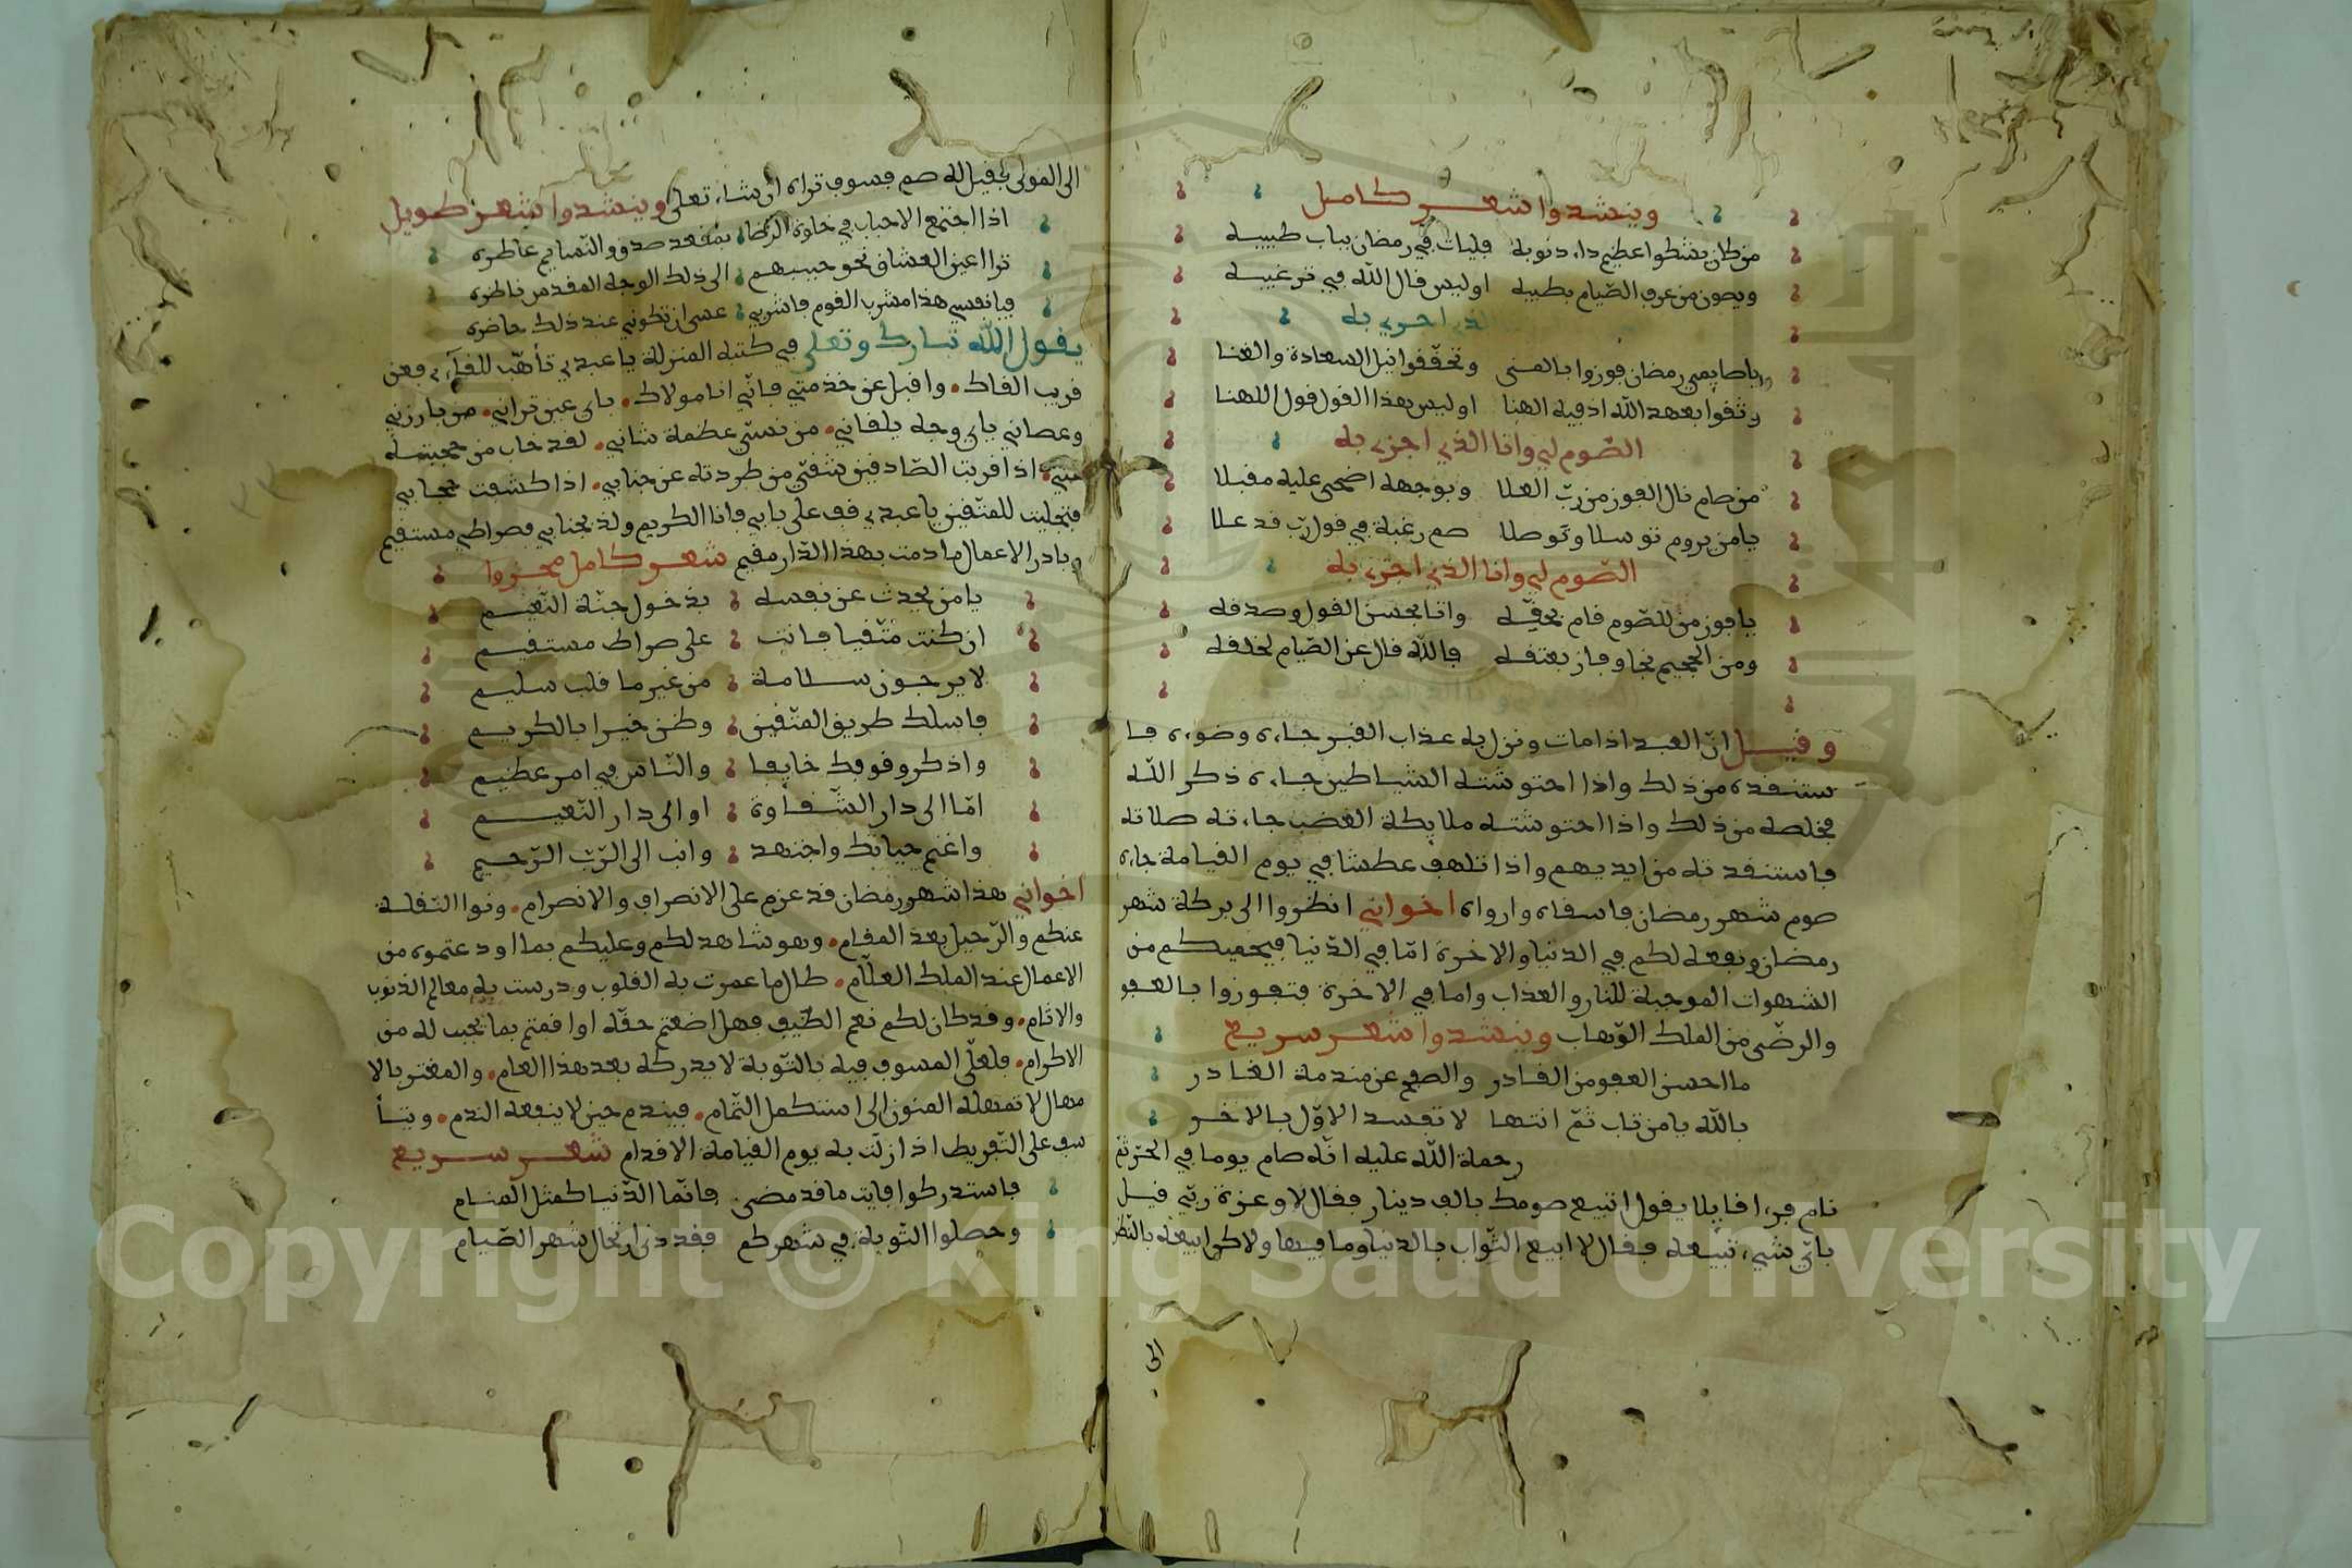 وينشدوا شعر كامل
من كان يشكوا عظيم داء ذنوبه فليات في رمضان باب طبيبه
ويصون من عرف الصّيام بطيبه اوليس قال الله في ترغيبه
اجزي به
يا صايمي رمضان فوزوا بالمنى وتحقّقوا نيل السعادة والغنا
وثقوا بعهد الله اذ فيه الهنا اوليس هذا القول قول الاهنا
الصّوم لي وانا الذي اجزي به
من صام نال الفوز من ربّ العلا وبوجهه اضحى عليه مقبلا
يا من يروم توسلا وتوصلا صم رغبة في قول ربّ قد علا
الصّوم لي وانا الذي اجزي به
يا فوز من للصّوم قام بحقّه واتا بحسن القول وصدقه
ومن الجحيم نجا وفاز بعتقه فالله قال عن الصّيام لخلقه
وقيل انّ العبد اذا مات ونزل به عذاب القبر جاءه وضوءه فا
ستنقذه من ذلك واذا احتوشته الشياطين جاءه ذكر الله
فخلصه من ذلك واذا احتوشته ملايكة الغضب جاءته صلاته
فاستنقذته من ايديهم واذا تلهف عطشا في يوم القيامة جاءه
صوم شهر رمضان فاسقاه وارواه اخواني انظروا الى بركة شهر
رمضان ونفعه لكم في الدنيا والاخرة امّا في الدّنيا فيحميكم من
الشهوات الموجبة للنار والعذاب واما في الاخرة فتفوزوا بالعفو
والرضّى من الملك الوّهاب وينشدوا شعر سريع
ما احسن العفو من القادر والصفح عن مندمة الغادر
بالله يا من تاب ثمّ انتها لا تفسد الاوّل بالاخر
رحمة الله عليه انّه صام يوما في الحرّ ثمّ
نام فرءا قايلا يقول اتبيع صومك بالف دينار فقال لا وعزة ربّي قيل
بايّ شيء تبيعه فقال لا ابيع الثّواب بالدنيا وما فيها ولاكن ابيعه بالنّظر
الى
الى المولى فقيل له صم فسوف تراه ان شاء تعلى وينشدوا شعر طويل
اذا اجتمع الاحباب في خلوة الرّضا بمقعد صدق والنّسايم عاطره
ترا اعين العشاق نحو حبيبهم الى ذلك الوجه المقدس ناظره
فيا نفسي هذا مشرب القوم فاشربي عسى ان تكوني عند ذلك حاضره
يقول الله تبارك وتعلى في كتبه المنزلة يا عبدي تأهّب للقآءي فعن
قريب القاك. واقبل عن خدمتي فانّي انا مولاك. باي عين تراني. من بارزني
وعصاني باي وجه يلقاني. من نسي عظمة شاني. لقد خاب من حجبته
عنّي. اذا قربت الصّادقين شقي من طردته عن جنابي. اذا كشفت حجابي
فتجليت للمتّقين يا عبدي قف على بابي فانا الكريم ولذ بجنابي فصراطي مستقيم
وبادر الاعمال ما دمت بهذا الدّار مقيم شعر كامل مجزوا
يا من يحدث عن نفسه بدخول جنّة النّعيم
ان كنت متّقيا فانت على صراط مستقيم
لا يرجون سلامة من غير ما قلب سليم
فاسلك طريق المتّقين وظن خيرا بالكريم
واذكر وقوفك خايفا والنّاس في امر عظيم
امّا الى دار الشّقاوة او الى دار النّعيم
واغنم حياتك واجتهد وانب الى الرّب الرّحيم
اخواني هذا شهر رمضان قد عزم على الانصراف والانصرام. ونوا النقلة
عنكم والرّحيل بعد المقام. وهو شاهد لكم وعليكم بما اودعتموه من
الاعمال عند الملك العلّام. طال ما عمرت به القلوب ودرست به معالم الذنوب
والاثام. وقد كان لكم نعم الضّيف فهل اضعتم حقّه او اقمتم بما يجب له من
الاكرام. فلعلّ المسوف فيه بالتّوبة لا يدركه بعد هذا العام. والمغتر بالا
مهال لا تمهله المنون الى استكمل التّمام. فيندم حين لا ينفعه الندم. ويتأ
سف على التّفريط اذا زلّت به يوم القيامة الاقدام شعر سريع
فاستدركوا فايت ما قد مضى فانّما الدّنيا كمثل المنام
وحصلوا التّوبة في شهركم فقد دنى ارتحال شهر الصّيام
Copyright © King Saud University